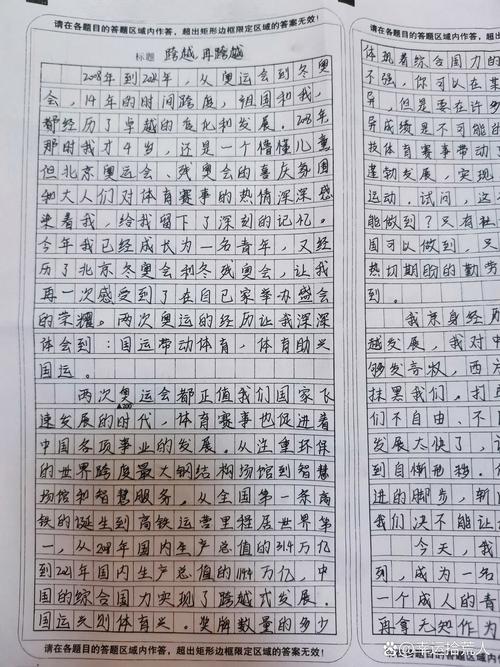 请在各题目的答题区域内作答，超出矩形边框限定区域的答案无效！
标题 跨越 再跨越
2008年到2022年，从奥运会到冬奥
会，14年的时间跨度，祖国和我，
都经历了卓越的变化和发展。2008年
那时我才4岁，还是一个懵懂儿童
但北京奥运会、残奥会的喜庆氛围
和大人们对体育赛事的热情深深感
染着我，给我留下了深刻的记忆。
今年我已经成长为一名青年，又经
历了北京冬奥会和冬残奥会，让我
再一次感受到了在自己家举办盛会
的荣耀。两次奥运的经历让我深深
体会到：国运带动体育，体育助兴
国运。
两次奥运会都正值我们国家飞
速发展的时代，体育赛事也促进着
▲200
中国各项事业的发展。从注重环保
的世界跨度最大钢结构场馆到智慧
场馆和智慧服务，从全国第一条高
铁的诞生到高铁运营里程居世界第
一，从2008年国内生产总值的31.4万亿
到2021年国内生产总值的114万亿，中
国的综合国力实现了跨越式发展。
国运兴则体育兴。奖牌数量的多少
请在各题目的答题区域内作答，超出矩形边框限定区域的答案无效！
请在各题目的答题区域
体现着综合国力的
不强，你可以在某
异，但是要在许多
异成绩是不可能的
技体育赛事带动了
蓬勃发展，实现
运动。试问，这
能做到？只有社
国可以做到，只
热切期盼的勤劳
到。
我亲身经历
越发展，我对中
够发奇牧，西方
抹黑我们。打
们不自由、不
发展太快了，
到自惭形秽。
进的脚步，斩
我们决不能让
今天，我
列，成为一名
一个成人的青
再拿无知作为
请在各题目的答题区域
幸运拾荒人